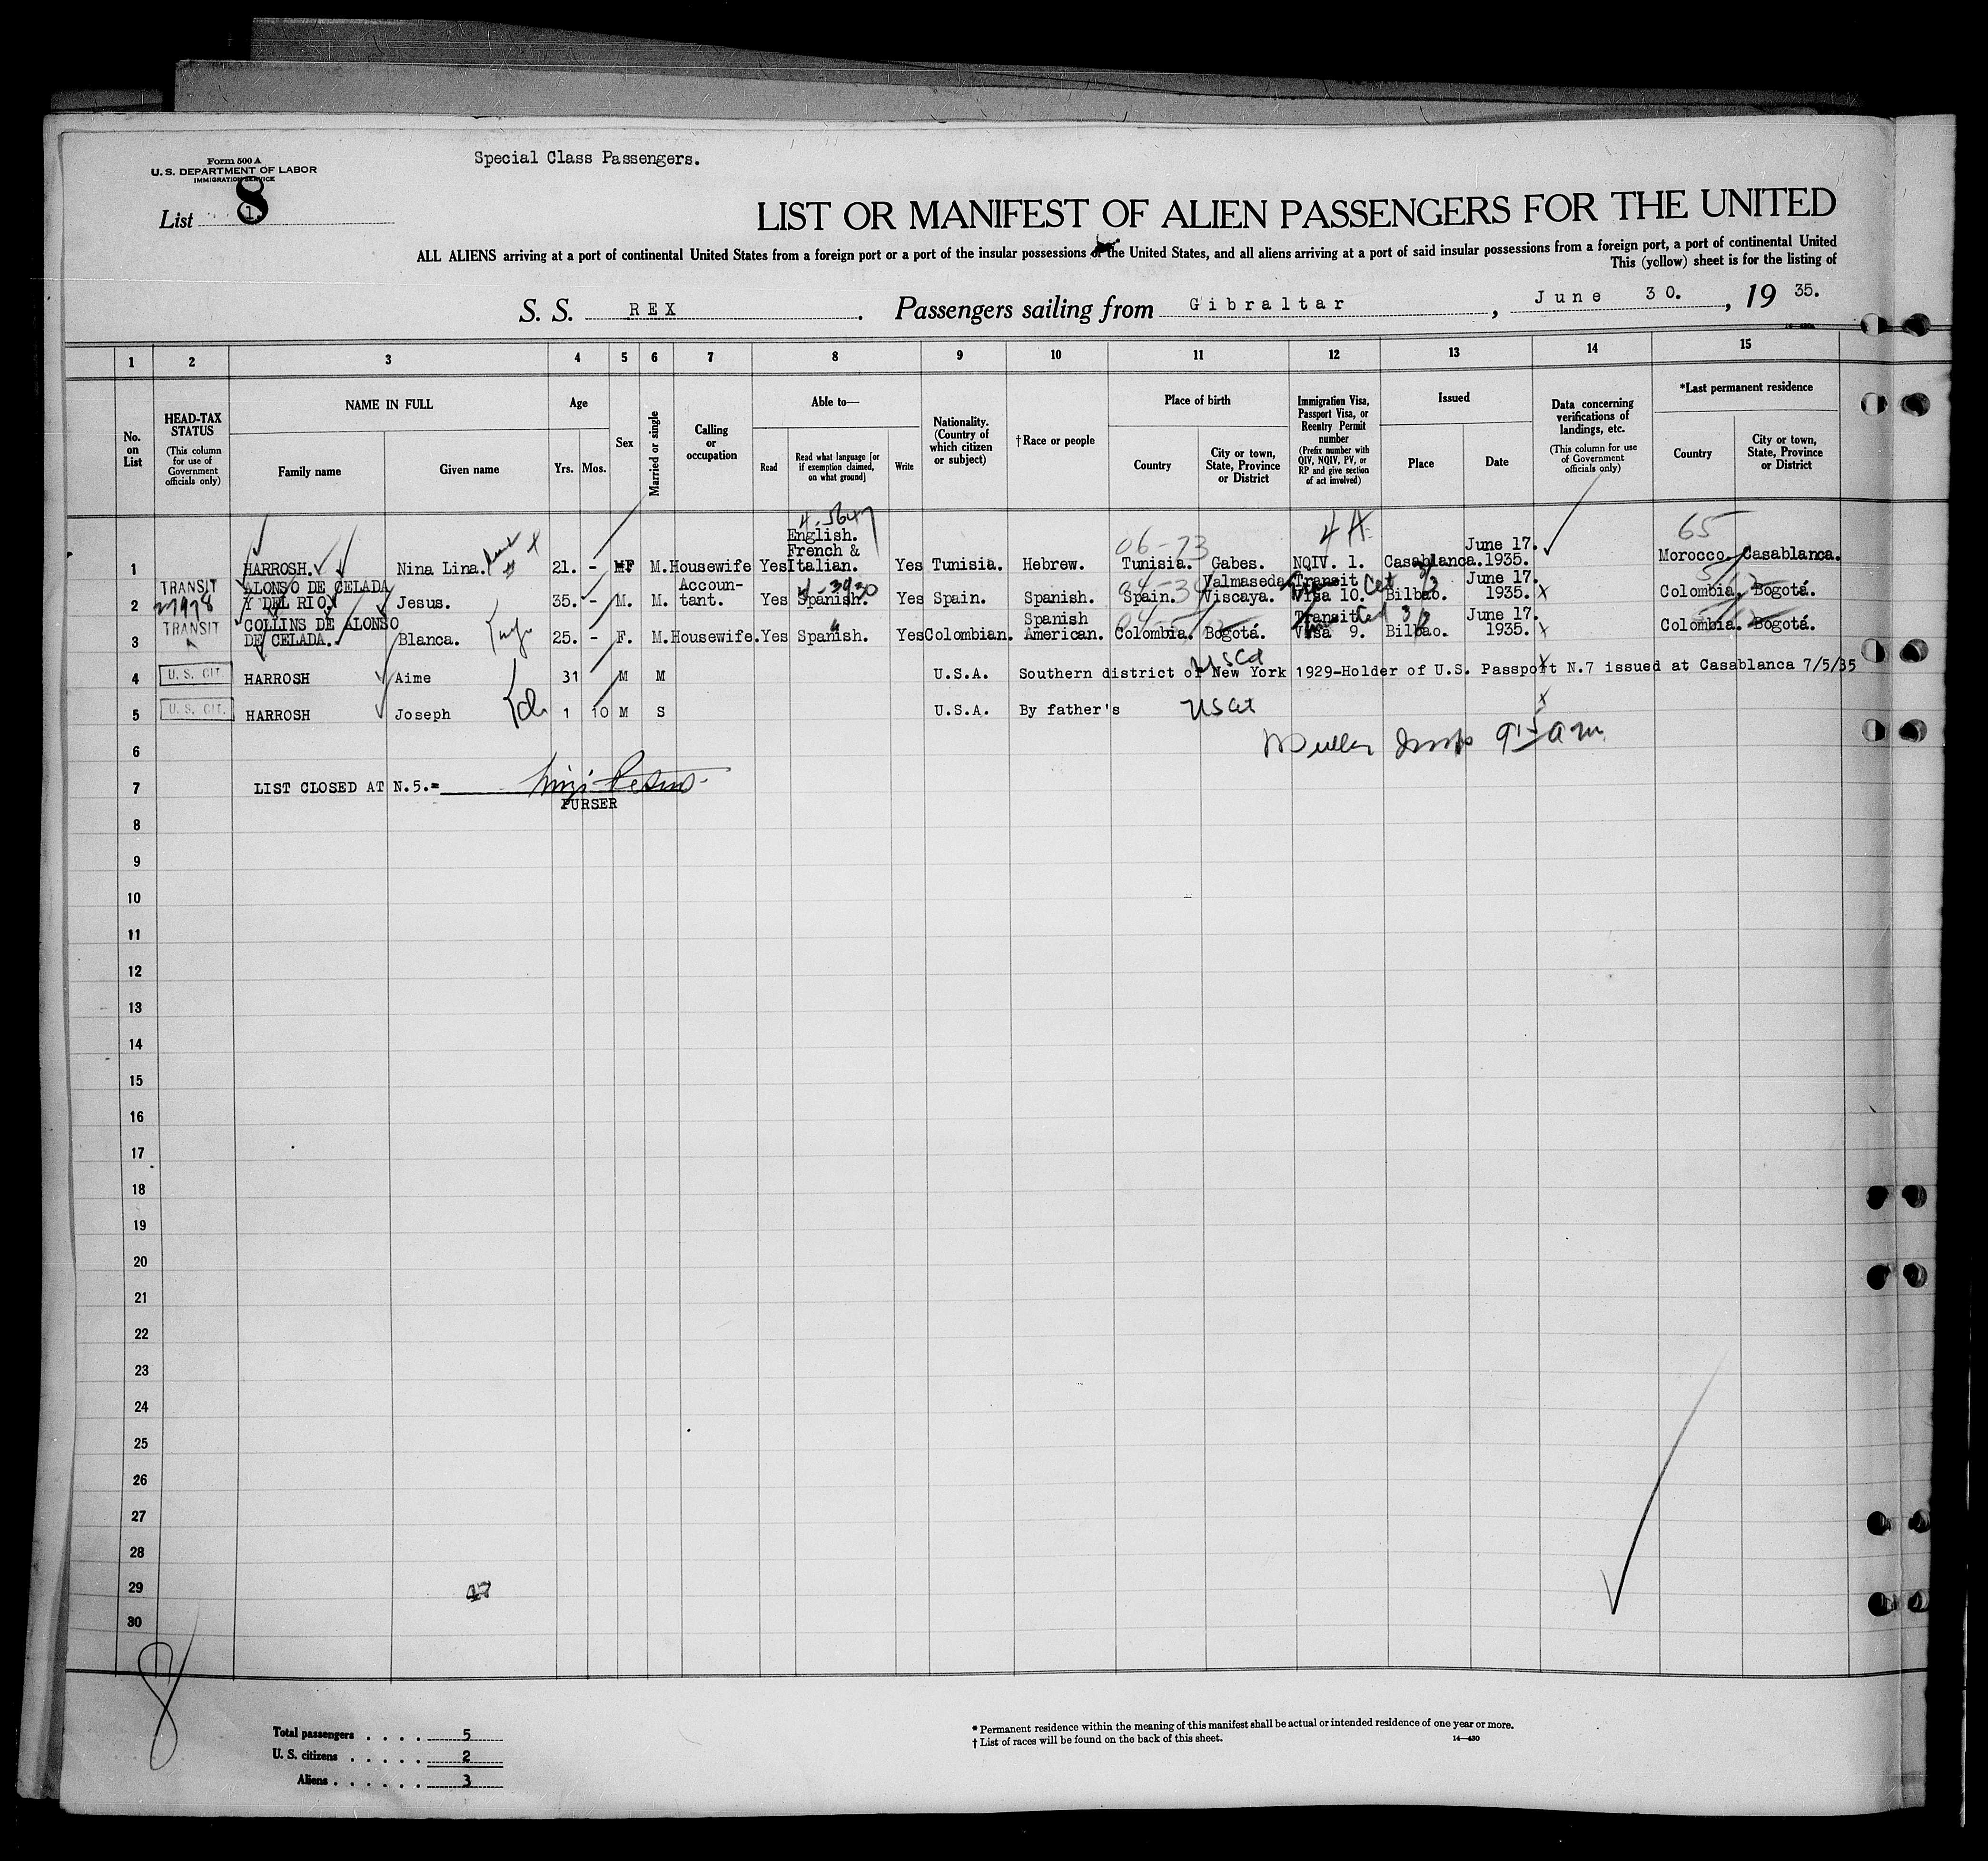 Form 500 A
U. S. DEPARTMENT OF LABOR
IMMIGRATION SERVICE
Special Class Passengers.
List 1. 8
LIST OR MANIFEST OF ALIEN PASSENGERS FOR THE UNITED
ALL ALIENS arriving at a port of continental United States from a foreign port or a port of the insular possessions of the United States, and all aliens arriving at a port of said insular possessions from a foreign port, a port of continental United
This (yellow) sheet is for the listing of
S. S. REX . Passengers sailing from Gibraltar , June 30. , 19 35.
1 2 3 4 5 6 7 8 9 10 11 12 13 14 15
No. on List
HEAD-TAX STATUS (This column for use of Government officials only)
NAME IN FULL
Family name
Given name
Age
Yrs. Mos.
Sex
Married or single
Calling or occupation
Able to—
Read
Read what language [or if exemption claimed, on what ground]
Write
Nationality. (Country of which citizen or subject)
†Race or people
Place of birth
Country
City or town, State, Province or District
Immigration Visa, Passport Visa, or Reentry Permit number (Prefix number with QIV, NQIV, PV, or RP and give section of act involved)
Issued
Place
Date
Data concerning verifications of landings, etc. (This column for use of Government officials only)
*Last permanent residence
Country
City or town, State, Province or District
4-5647 06-73 4A 65
1 HARROSH. Nina Lina. 21. - F M. Housewife Yes English. French & Italian. Yes Tunisia. Hebrew. Tunisia. Gabes. NQIV. 1. Casablanca. June 17. 1935. Morocco. Casablanca.
TRANSIT 27978
2 ALONSO DE CELADA Y DEL RIO. Jesus. 35. - M. M. Accoun-tant. Yes Spanish. Yes Spain. Spanish. Spain. Valmaseda Viscaya. Transit Visa 10. Bilbao. June 17. 1935. Colombia. Bogotá.
TRANSIT
3 COLLINS DE ALONSO DE CELADA. Blanca. 25. - F. M. Housewife. Yes Spanish. Yes Colombian. Spanish American. Colombia. Bogotá. Transit Visa 9. Bilbao. June 17. 1935. Colombia. Bogotá.
4 U. S. CIT. HARROSH Aime 31 M M U.S.A. Southern district of New York 1929-Holder of U.S. Passport N.7 issued at Casablanca 7/5/35
5 U. S. CIT. HARROSH Joseph 1 10 M S U.S.A. By father's
6
7 LIST CLOSED AT N.5.=
PURSER
8
9
10
11
12
13
14
15
16
17
18
19
20
21
22
23
24
25
26
27
28
29 47
30
8
Total passengers . . . . 5
U. S. citizens . . . . . 2
Aliens . . . . . . 3
* Permanent residence within the meaning of this manifest shall be actual or intended residence of one year or more.
† List of races will be found on the back of this sheet. 14—430